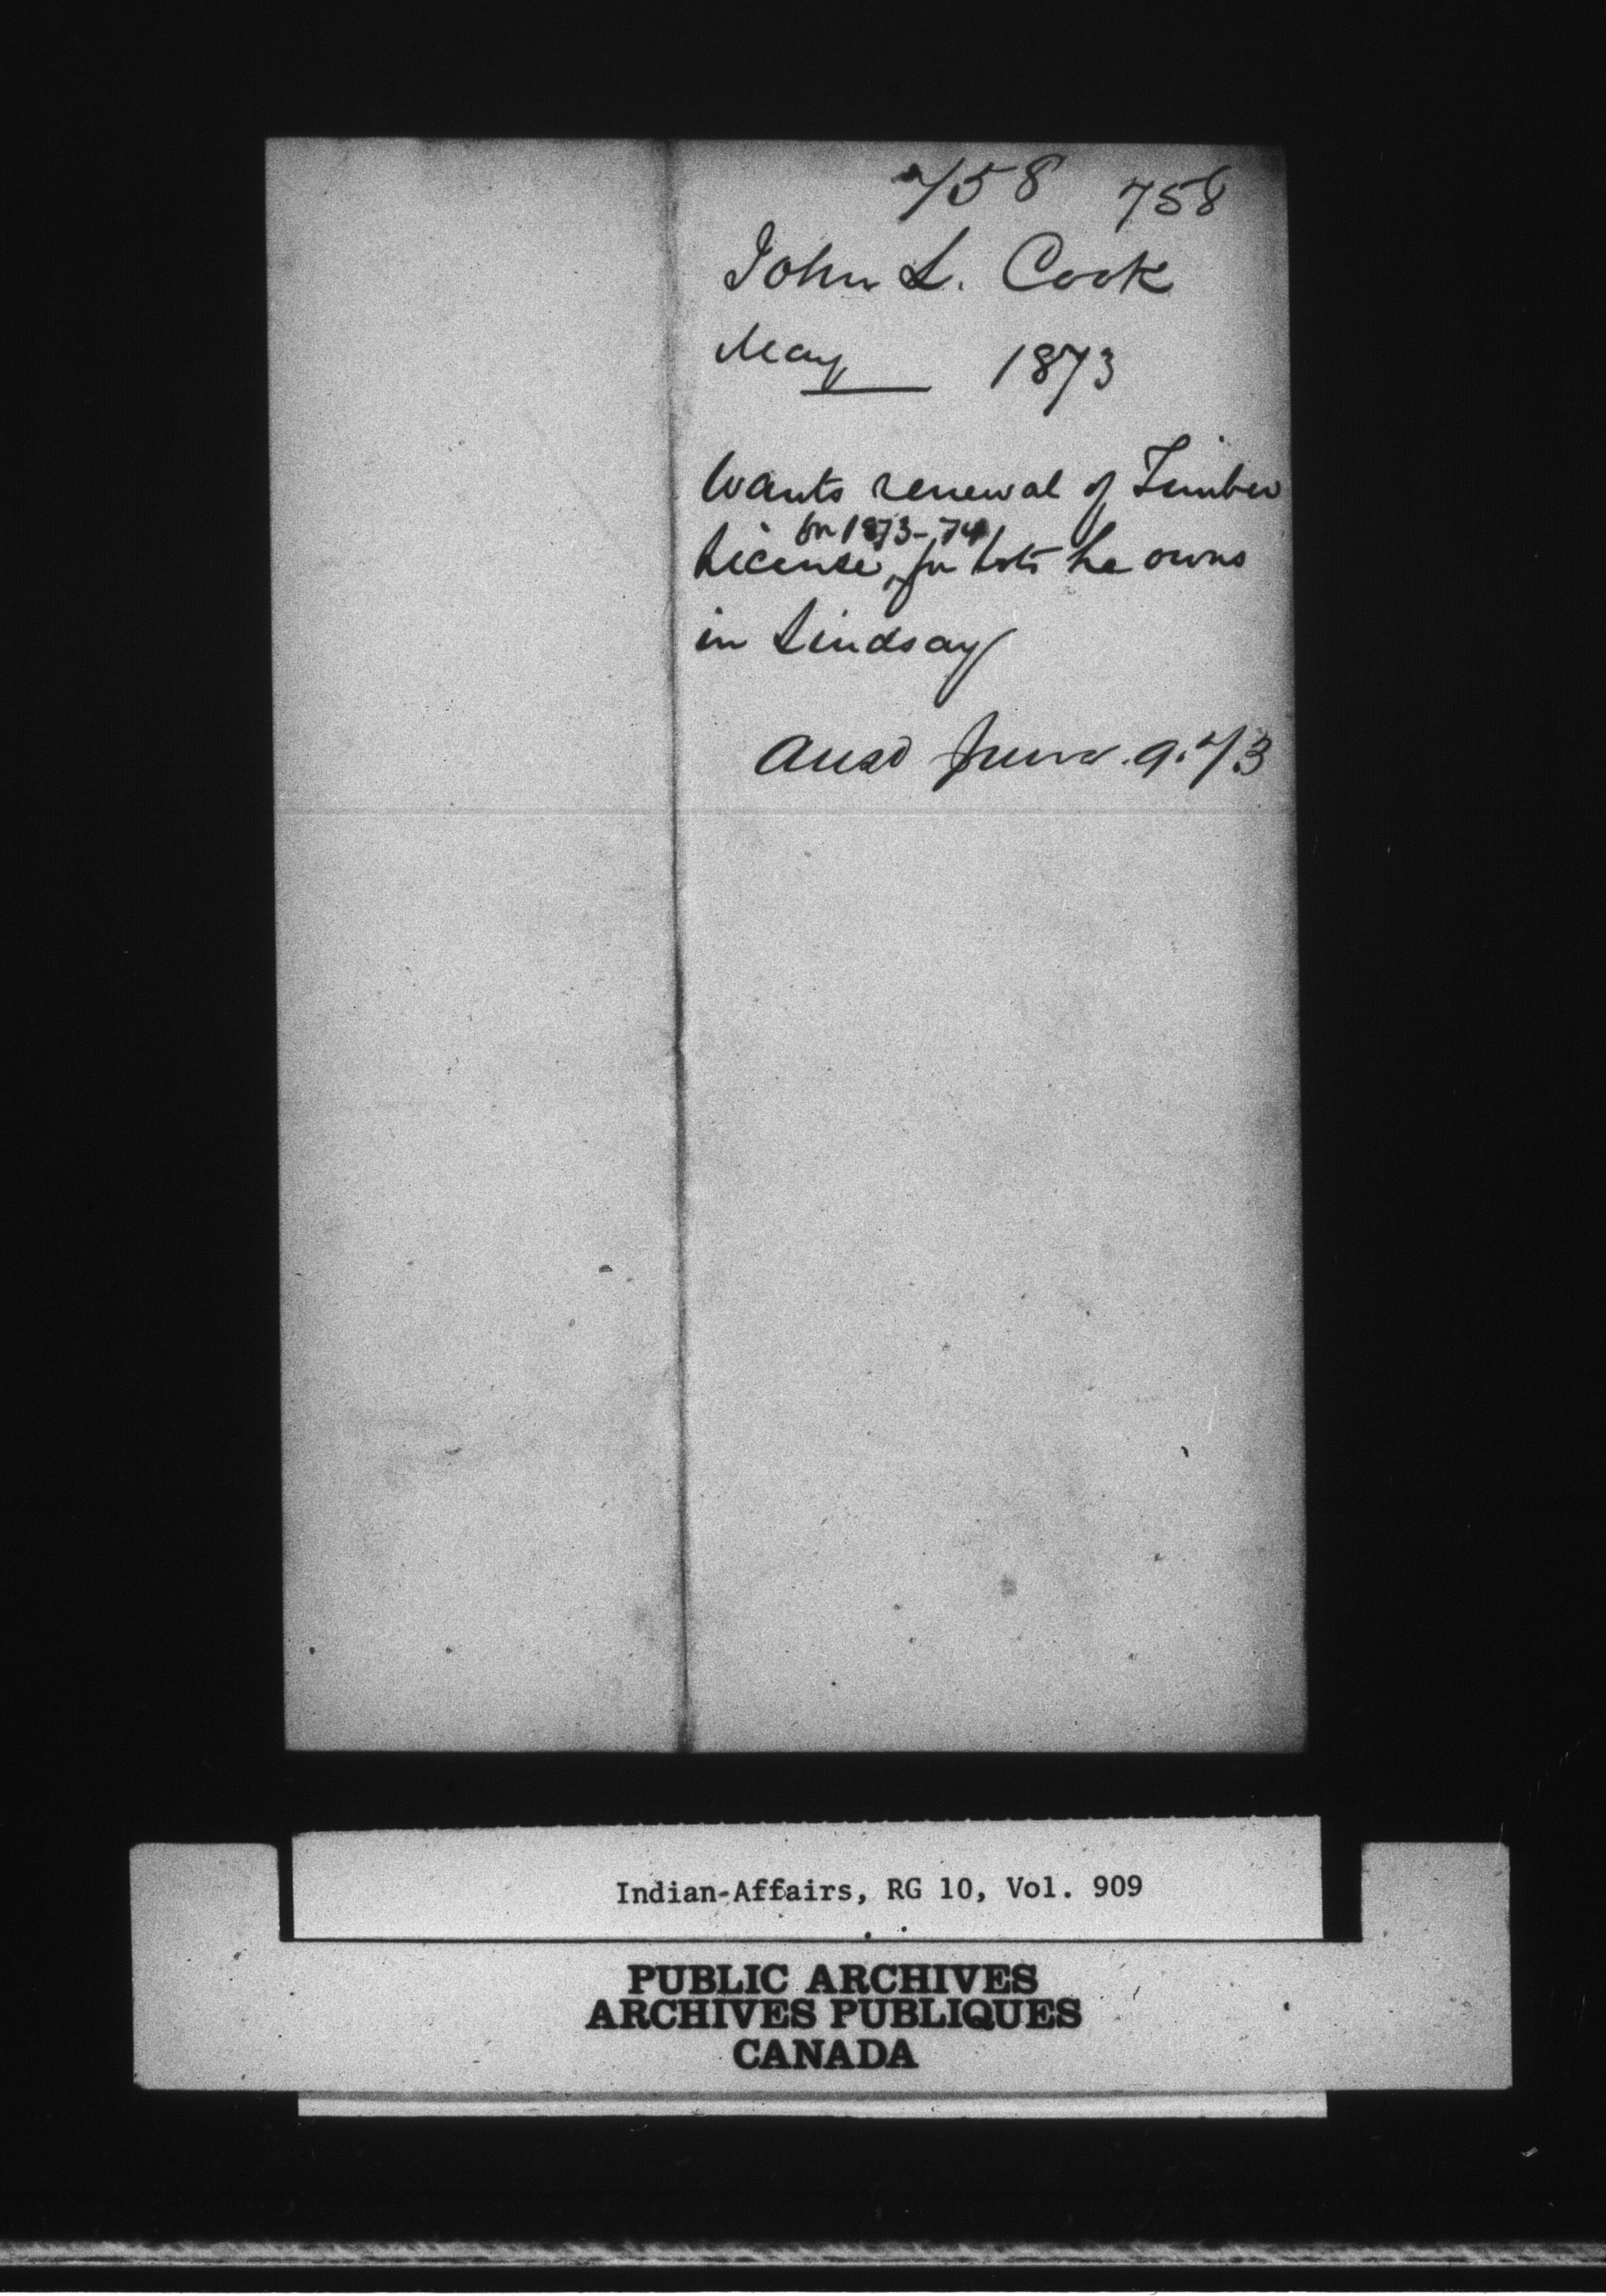 758 758
John L. Cook
May 1873
Wants renewal of Timber
for 1873-74
License, for lots he owns
in Lindsay
Ansd June 9. 73
Indian-Affairs, RG 10, Vol. 909
PUBLIC ARCHIVES
ARCHIVES PUBLIQUES
CANADA